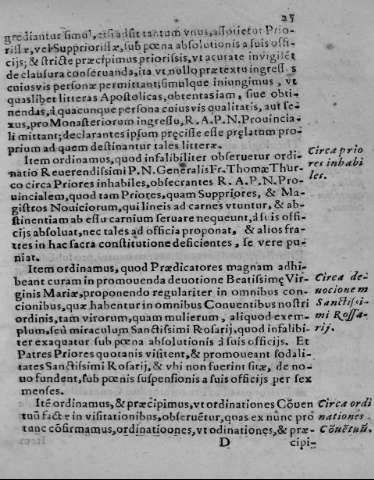 25
grediantur simul, etsi adsit tantum vnus, associetur Prio-
rissæ, vel Suppriorissæ, sub pœna absolutionis a suis offi-
cijs; & stricte præcipimus priorissis, vt acurate invigilēt
de clausura conseruanda, ita vt nullo prætextu ingressus
cuiusvis personæ permittant; simulque iniungimus, vt
quaslibet litteras Apostolicas, obtentas iam, siue obti-
nendas, à quacunque persona cuiusvis qualitatis, aut se-
xus, pro Monasteriorum ingressu, R.A.P.N. Prouincia-
li mittant; declarantes ipsum præcise esse prælatum pro-
prium ad quem destinantur tales litteræ.
Item ordinamus, quod infalibiliter obseruetur ordi-
natio Reuerendissimi P.N. Generalis Fr. Thomæ Thur-
co circa Priores inhabiles, obsecrantes R. A. P. N. Pro-
uincialem, quod tam Priores, quam Suppriores, & Ma-
gistros Nouiciorum, qui lineis ad carnes vtuntur, & ab-
stinentiam ab essu carnium seruare nequeunt, à suis offi-
cijs absoluat, nec tales ad officia proponat, & alios fra-
tres in hac sacra constitutione deficientes, se vere pu-
niat.
Circa prio
res inhabi
les.
Item ordinamus, quod Prædicatores magnam adhi-
beant curam in promouenda deuotione Beatissimę Vir-
ginis Mariæ, proponendo regulariter in omnibus con-
cionibus, quæ habentur in omnibus Conuentibus nostri
ordinis, tam virorum, quam mulierum, aliquod exem-
plum, seu miraculum Sanctissimi Rosarij, quod infalibi-
ter exaquatur sub pœna absolutionis à suis officijs. Et
Patres Priores quotanis visitent, & promoueant sodali-
tates Sanctissimi Rosarij, & vbi non fuerint sitæ, de no-
uo fundent, sub pœnis suspensionis a suis officijs per sex
menses.
Circa de-
uocionem
Sanctissi-
mi Rossa-
rij.
Itē ordinamus, & præcipimus, vt ordinationes Cōuen
tuū factæ in visitationibus, obseruētur, quas ex nūnc pro
tunc cōfirmamus, ordinatioones, vt odinationes, & præ-
Circa ordi
nationes
Cōuētuū.
D cipi-